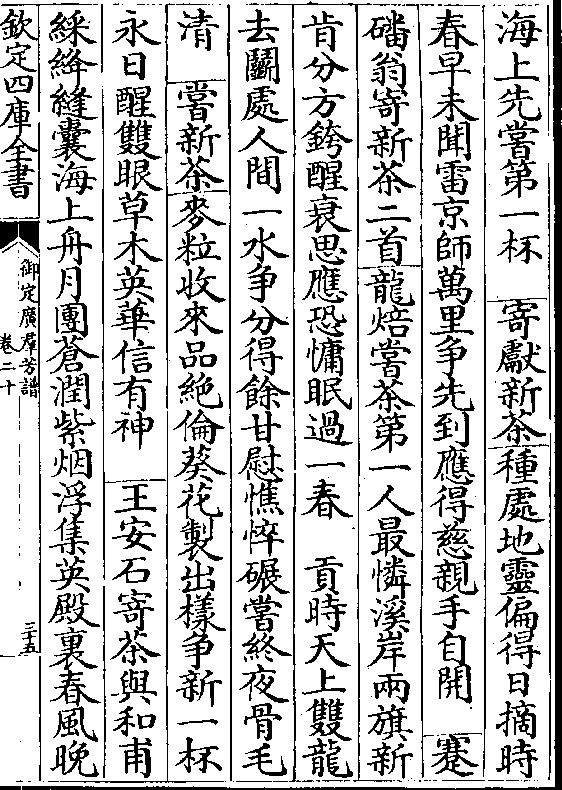 海上先嘗第一杯　寄獻新茶種處地靈偏得日摘時
春早未聞雷京師萬里争先到應得慈親手自開　蹇
磻翁寄新茶二首龍焙嘗茶第一人最憐溪岸兩旗新
肯分方銙醒衰思應恐慵眠過一春　貢時天上雙龍
去鬭處人間一水争分得餘甘慰憔悴碾嘗終夜骨毛
清　嘗新茶麥粒收來品絶倫葵花製出樣争新一杯
永日醒雙眼草木英華信有神　王安石寄茶與和甫
綵絳縫囊海上舟月團蒼潤紫烟浮集英殿裏春風晚
欽定四庫全書
御定廣羣芳譜
卷二十
三十五